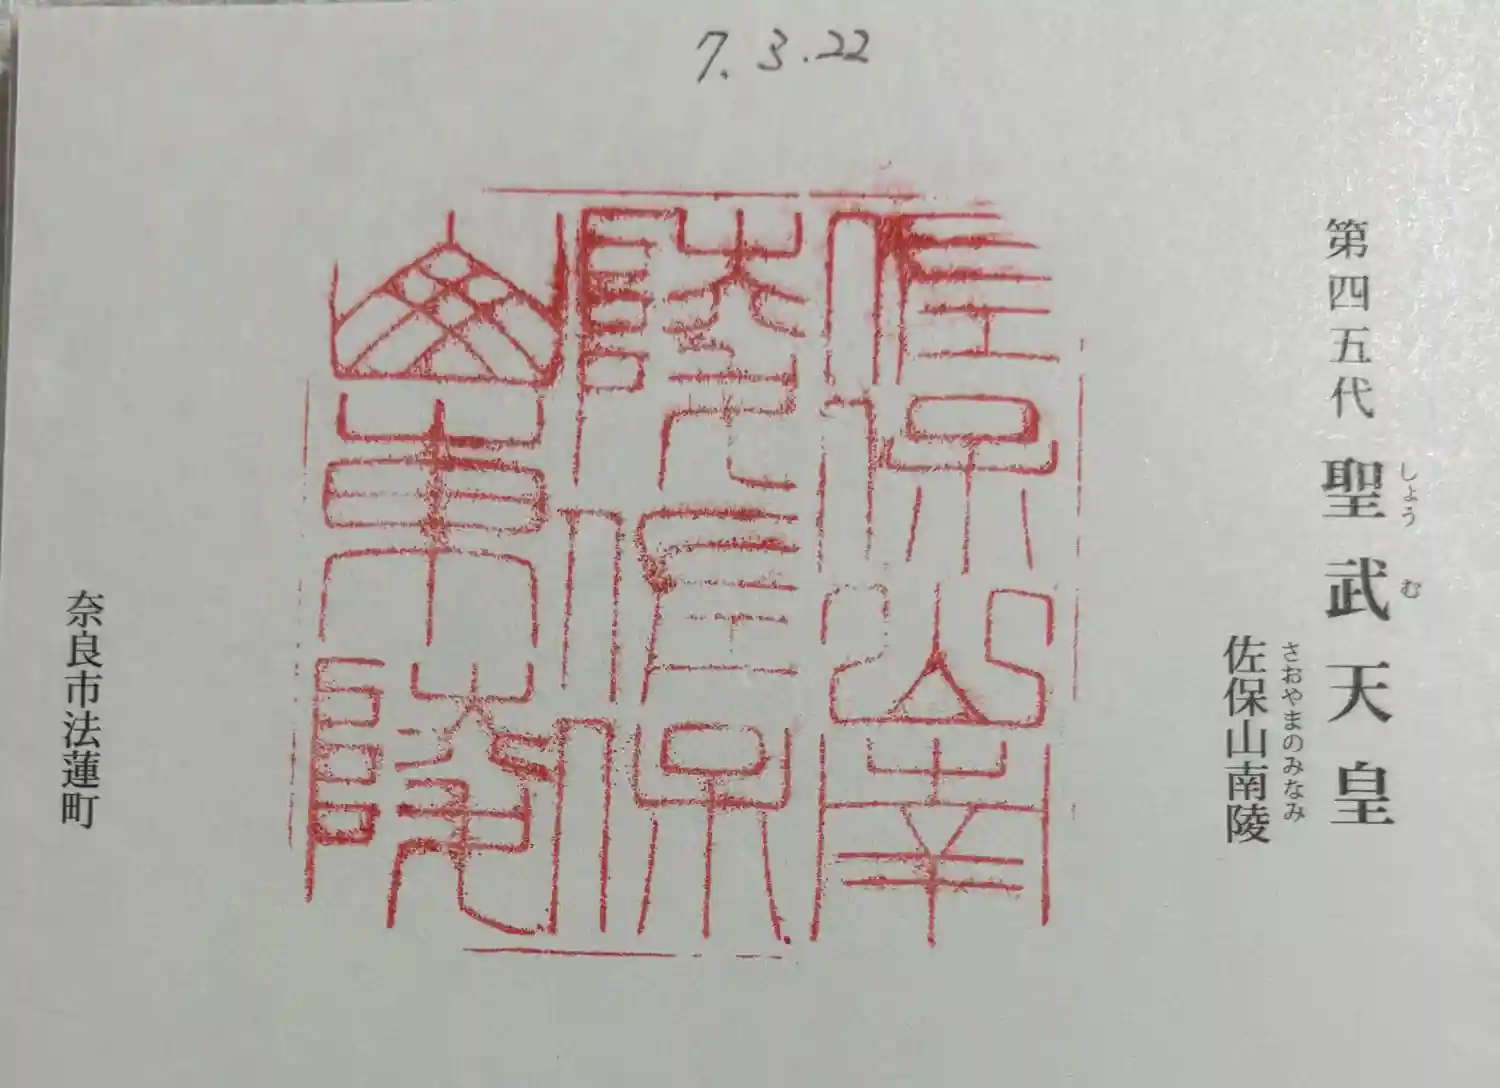 7.3.22
第四五代 聖武天皇
しょう む
佐保山南陵
さおやまのみなみ
佐保山南
陵佐保
山東陵
奈良市法蓮町